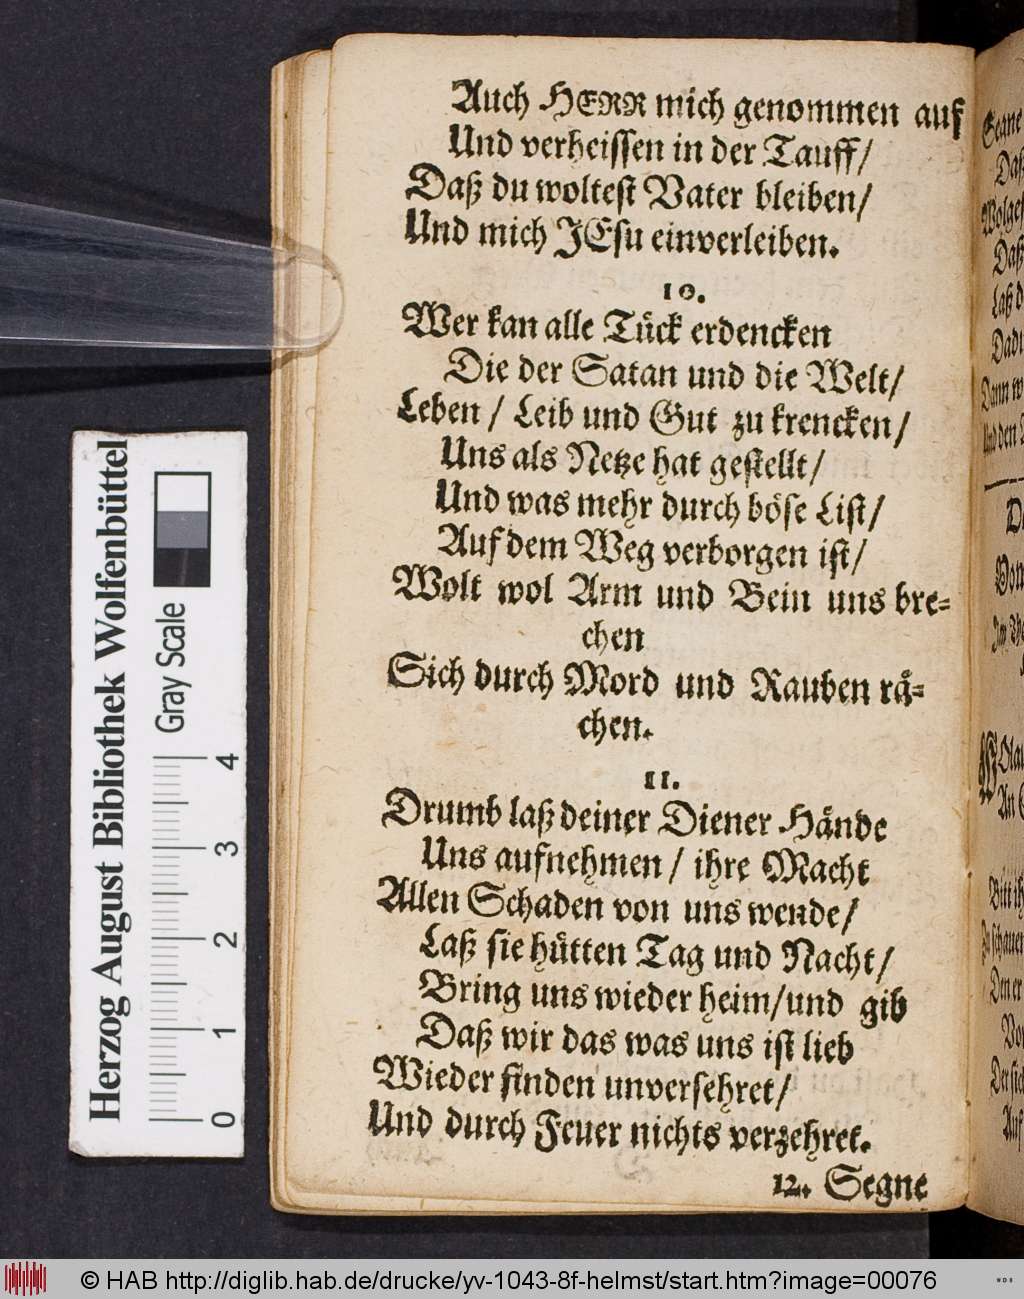 Auch HERR mich genommen auf
Und verheissen in der Tauff/
Daß du woltest Vater bleiben/
Und mich JEsu einverleiben.
10.
Wer kan alle Tück erdencken
Die der Satan und die Welt/
Leben / Leib und Gut zu krencken/
Uns als Netze hat gestellt/
Und was mehr durch böse List/
Auf dem Weg verborgen ist/
Wolt wol Arm und Bein uns bre-
chen
Sich durch Mord und Rauben rä-
chen.
11.
Drumb laß deiner Diener Hände
Uns aufnehmen / ihre Macht
Allen Schaden von uns wende/
Laß sie hütten Tag und Nacht/
Bring uns wieder heim/und gib
Daß wir das was uns ist lieb
Wieder finden unversehret/
Und durch Feuer nichts verzehret.
12. Segne
Segne
Daß
Daß
Laß
Dann
Und den
Auf
Herzog August Bibliothek Wolfenbüttel
Gray Scale
0 1 2 3 4
© HAB http://diglib.hab.de/drucke/yv-1043-8f-helmst/start.htm?image=00076